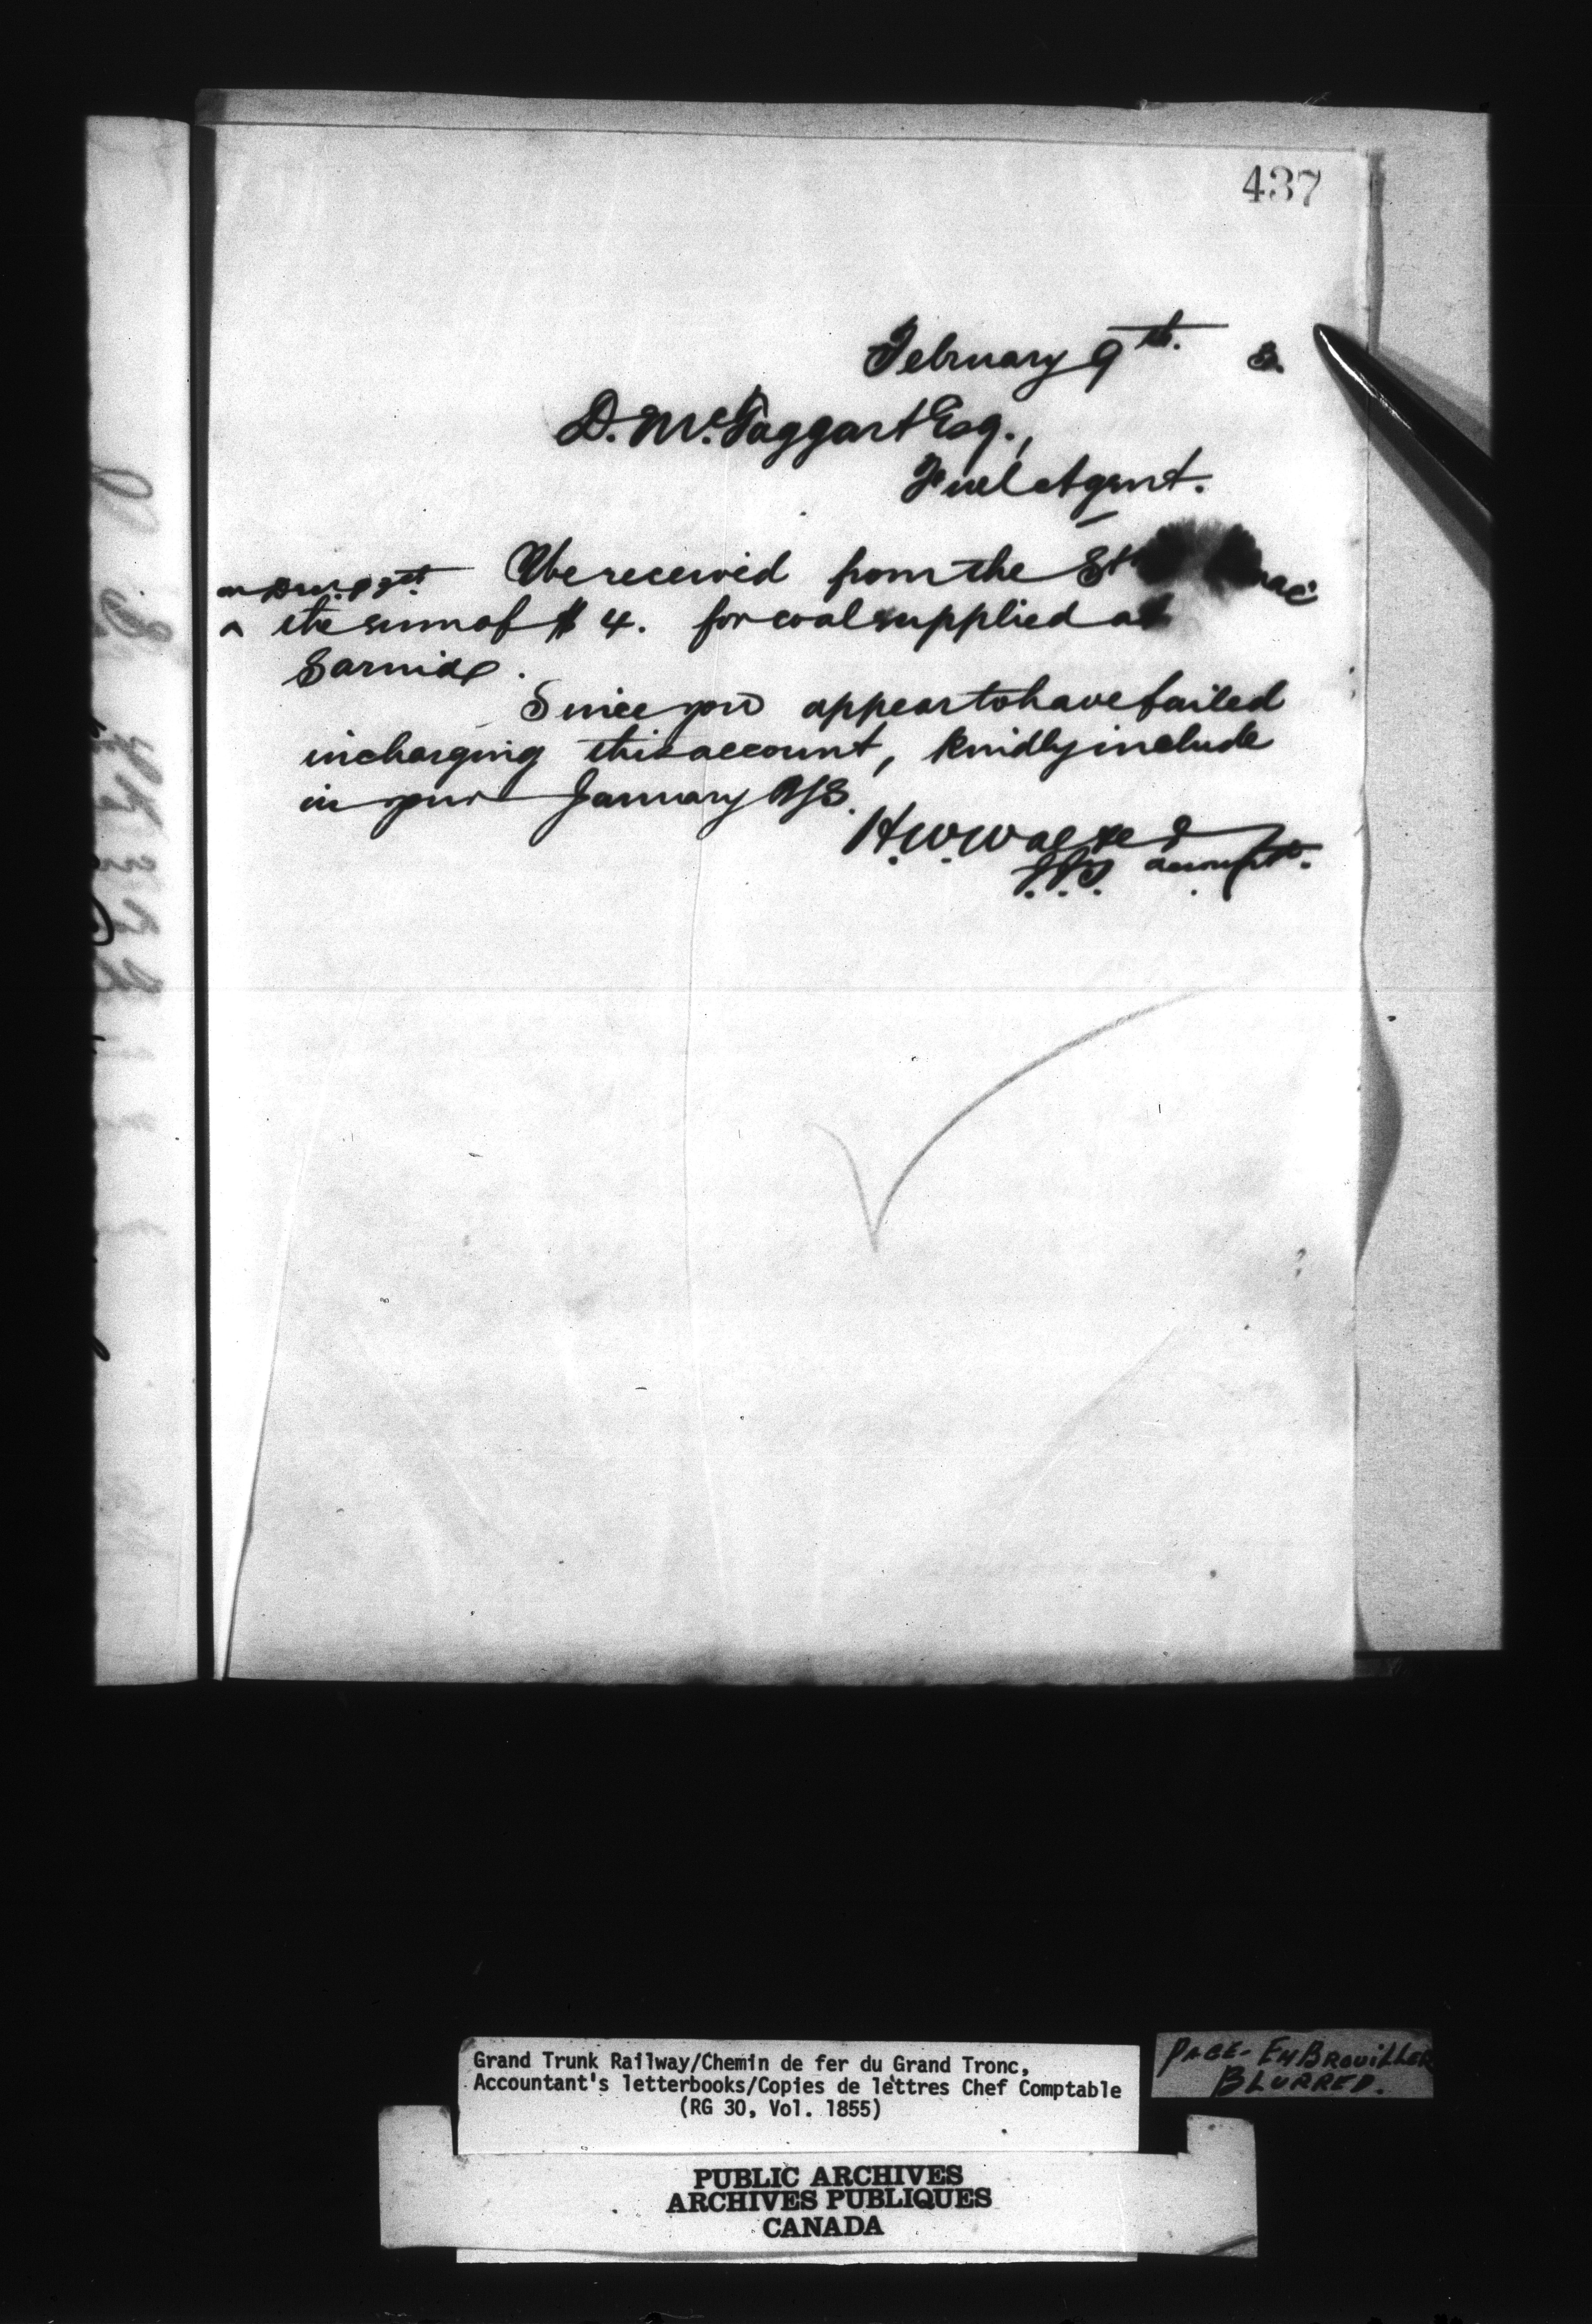 437
February 9th. 3.
D. McTaggart Esq.,
Fuel Agent.
We received from the Str
on Dec. 22st
^ the sum of $4. for coal supplied at
Sarnia.
Since you appear to have failed
in charging this account, kindly include
in your January A/S.
H. W. Walker
accountt.
Grand Trunk Railway/Chemin de fer du Grand Tronc,
Accountant's letterbooks/Copies de lettres Chef Comptable
(RG 30, Vol. 1855)
PAGE - EMBROUILLER
BLURRED.
PUBLIC ARCHIVES
ARCHIVES PUBLIQUES
CANADA